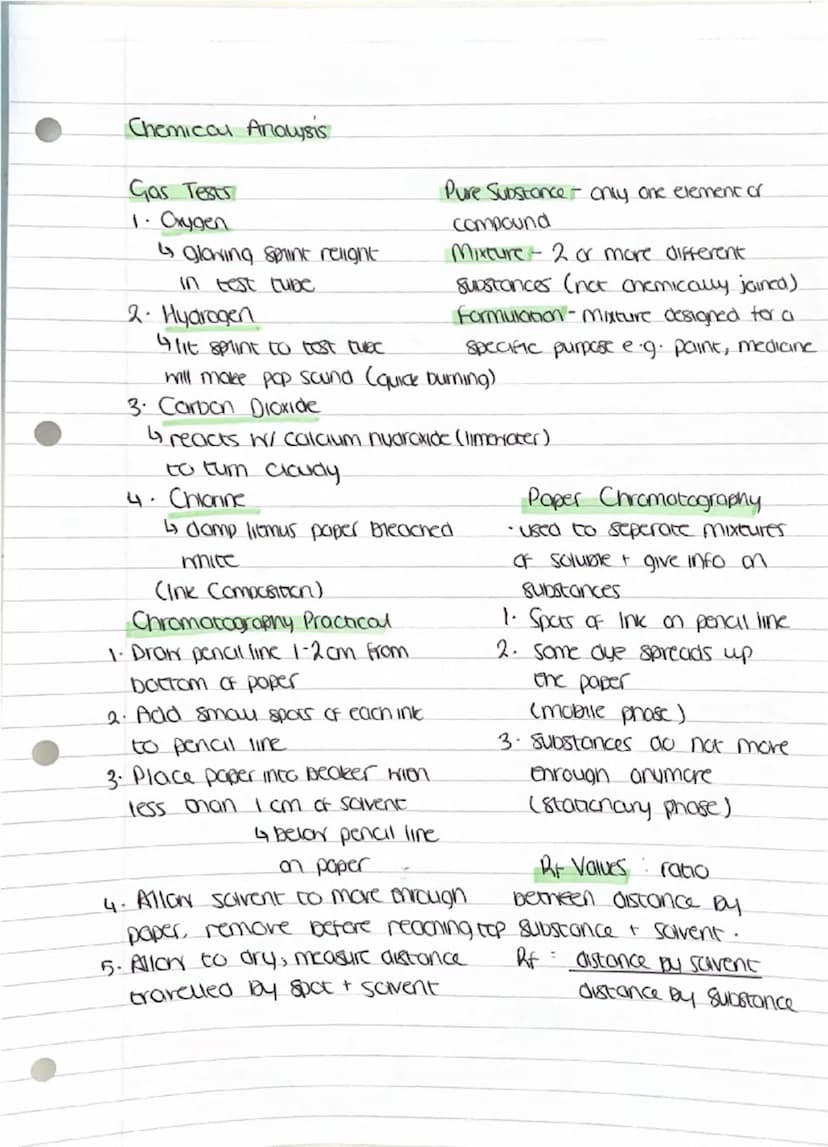 Chemical Analysis
Gas Tests
1. Oxygen
↳ glowing splint relight
in test tube
2. Hydrogen
↳ lit splint to test tube
will make pop sound (quick burning)
3. Carbon Dioxide
↳ reacts w/ calcium hydroxide (limewater)
to turn cloudy
4. Chlorine
↳ damp litmus paper bleached
white
Pure Substance - only one element or
compound
Mixture - 2 or more different
substances (not chemically joined)
Formulation - mixture designed for a
specific purpose e.g. paint, medicine
(Ink Composition)
Chromatography Practical
1. Draw pencil line 1-2cm from
bottom of paper
2. Add small spots of each ink
to pencil line
3. Place paper into beaker with
less than 1 cm of solvent
↳ below pencil line
on paper
4. Allow solvent to move through
paper, remove before reaching top
5. Allow to dry, measure distance
travelled by spot + solvent
Paper Chromatography
· used to seperate mixtures
of soluble + give info on
substances
1. Spots of Ink on pencil line
2. Some dye spreads up
the paper
(mobile phase)
3. Substances do not move
through anymore
(stationary phase)
Rf Values : ratio
between distance by
substance + solvent.
Rf = distance by solvent
distance by substance